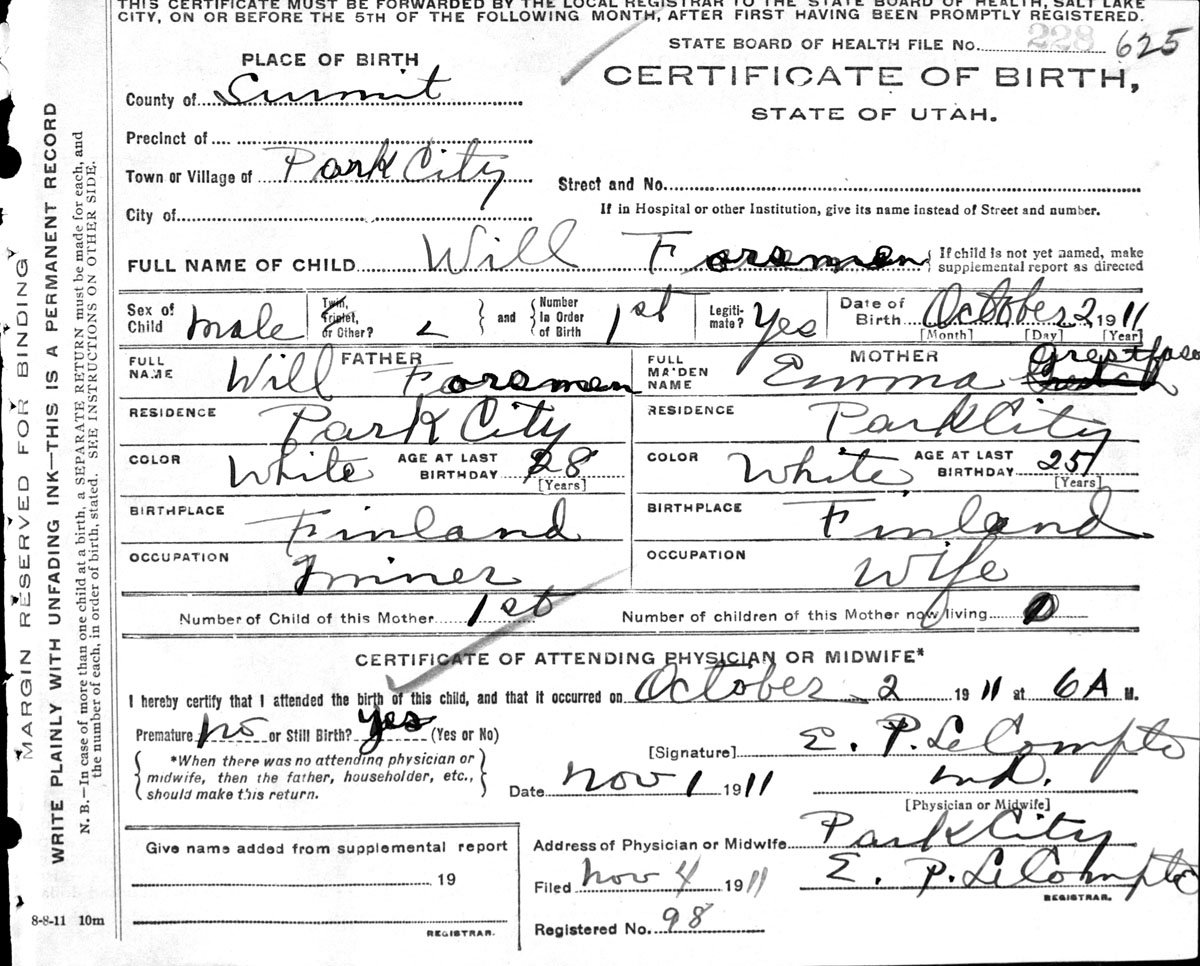 THIS CERTIFICATE MUST BE FORWARDED BY THE LOCAL REGISTRAR TO THE STATE BOARD OF HEALTH, SALT LAKE
CITY, ON OR BEFORE THE 5TH OF THE FOLLOWING MONTH, AFTER FIRST HAVING BEEN PROMPTLY REGISTERED.
STATE BOARD OF HEALTH FILE No. 228 625
PLACE OF BIRTH
CERTIFICATE OF BIRTH,
STATE OF UTAH.
County of Summit
Precinct of
Town or Village of Park City
Street and No.
City of
If in Hospital or other Institution, give its name instead of Street and number.
FULL NAME OF CHILD Will Forsmen { If child is not yet named, make supplemental report as directed
Sex of Child male Twin, Triplet, or Other? and { Number In Order of Birth 1st Legitimate? Yes Date of Birth October 2 1911
[Month] [Day] [Year]
FATHER
FULL NAME Will Forsmen
RESIDENCE Park City
COLOR White AGE AT LAST BIRTHDAY 28
[Years]
BIRTHPLACE Finland
OCCUPATION miner
MOTHER
FULL MAIDEN NAME Emma
RESIDENCE Park City
COLOR White AGE AT LAST BIRTHDAY 25
[Years]
BIRTHPLACE Finland
OCCUPATION Wife
Number of Child of this Mother 1st Number of children of this Mother now living 0
CERTIFICATE OF ATTENDING PHYSICIAN OR MIDWIFE*
I hereby certify that I attended the birth of this child, and that it occurred on October 2 1911 at 6 A M.
Premature no or Still Birth? yes (Yes or No)
*When there was no attending physician or
midwife, then the father, householder, etc.,
should make this return.
[Signature] E. P. LeCompte
Date Nov 1 1911 M.D.
[Physician or Midwife]
Give name added from supplemental report
19
REGISTRAR.
Address of Physician or Midwife Park City
Filed Nov 4 1911 E. P. LeCompte
REGISTRAR.
Registered No. 98
8-8-11 10m
MARGIN RESERVED FOR BINDING
WRITE PLAINLY WITH UNFADING INK—THIS IS A PERMANENT RECORD
N. B.—In case of more than one child at a birth, a SEPARATE RETURN must be made for each, and
the number of each, in order of birth, stated. SEE INSTRUCTIONS ON OTHER SIDE.